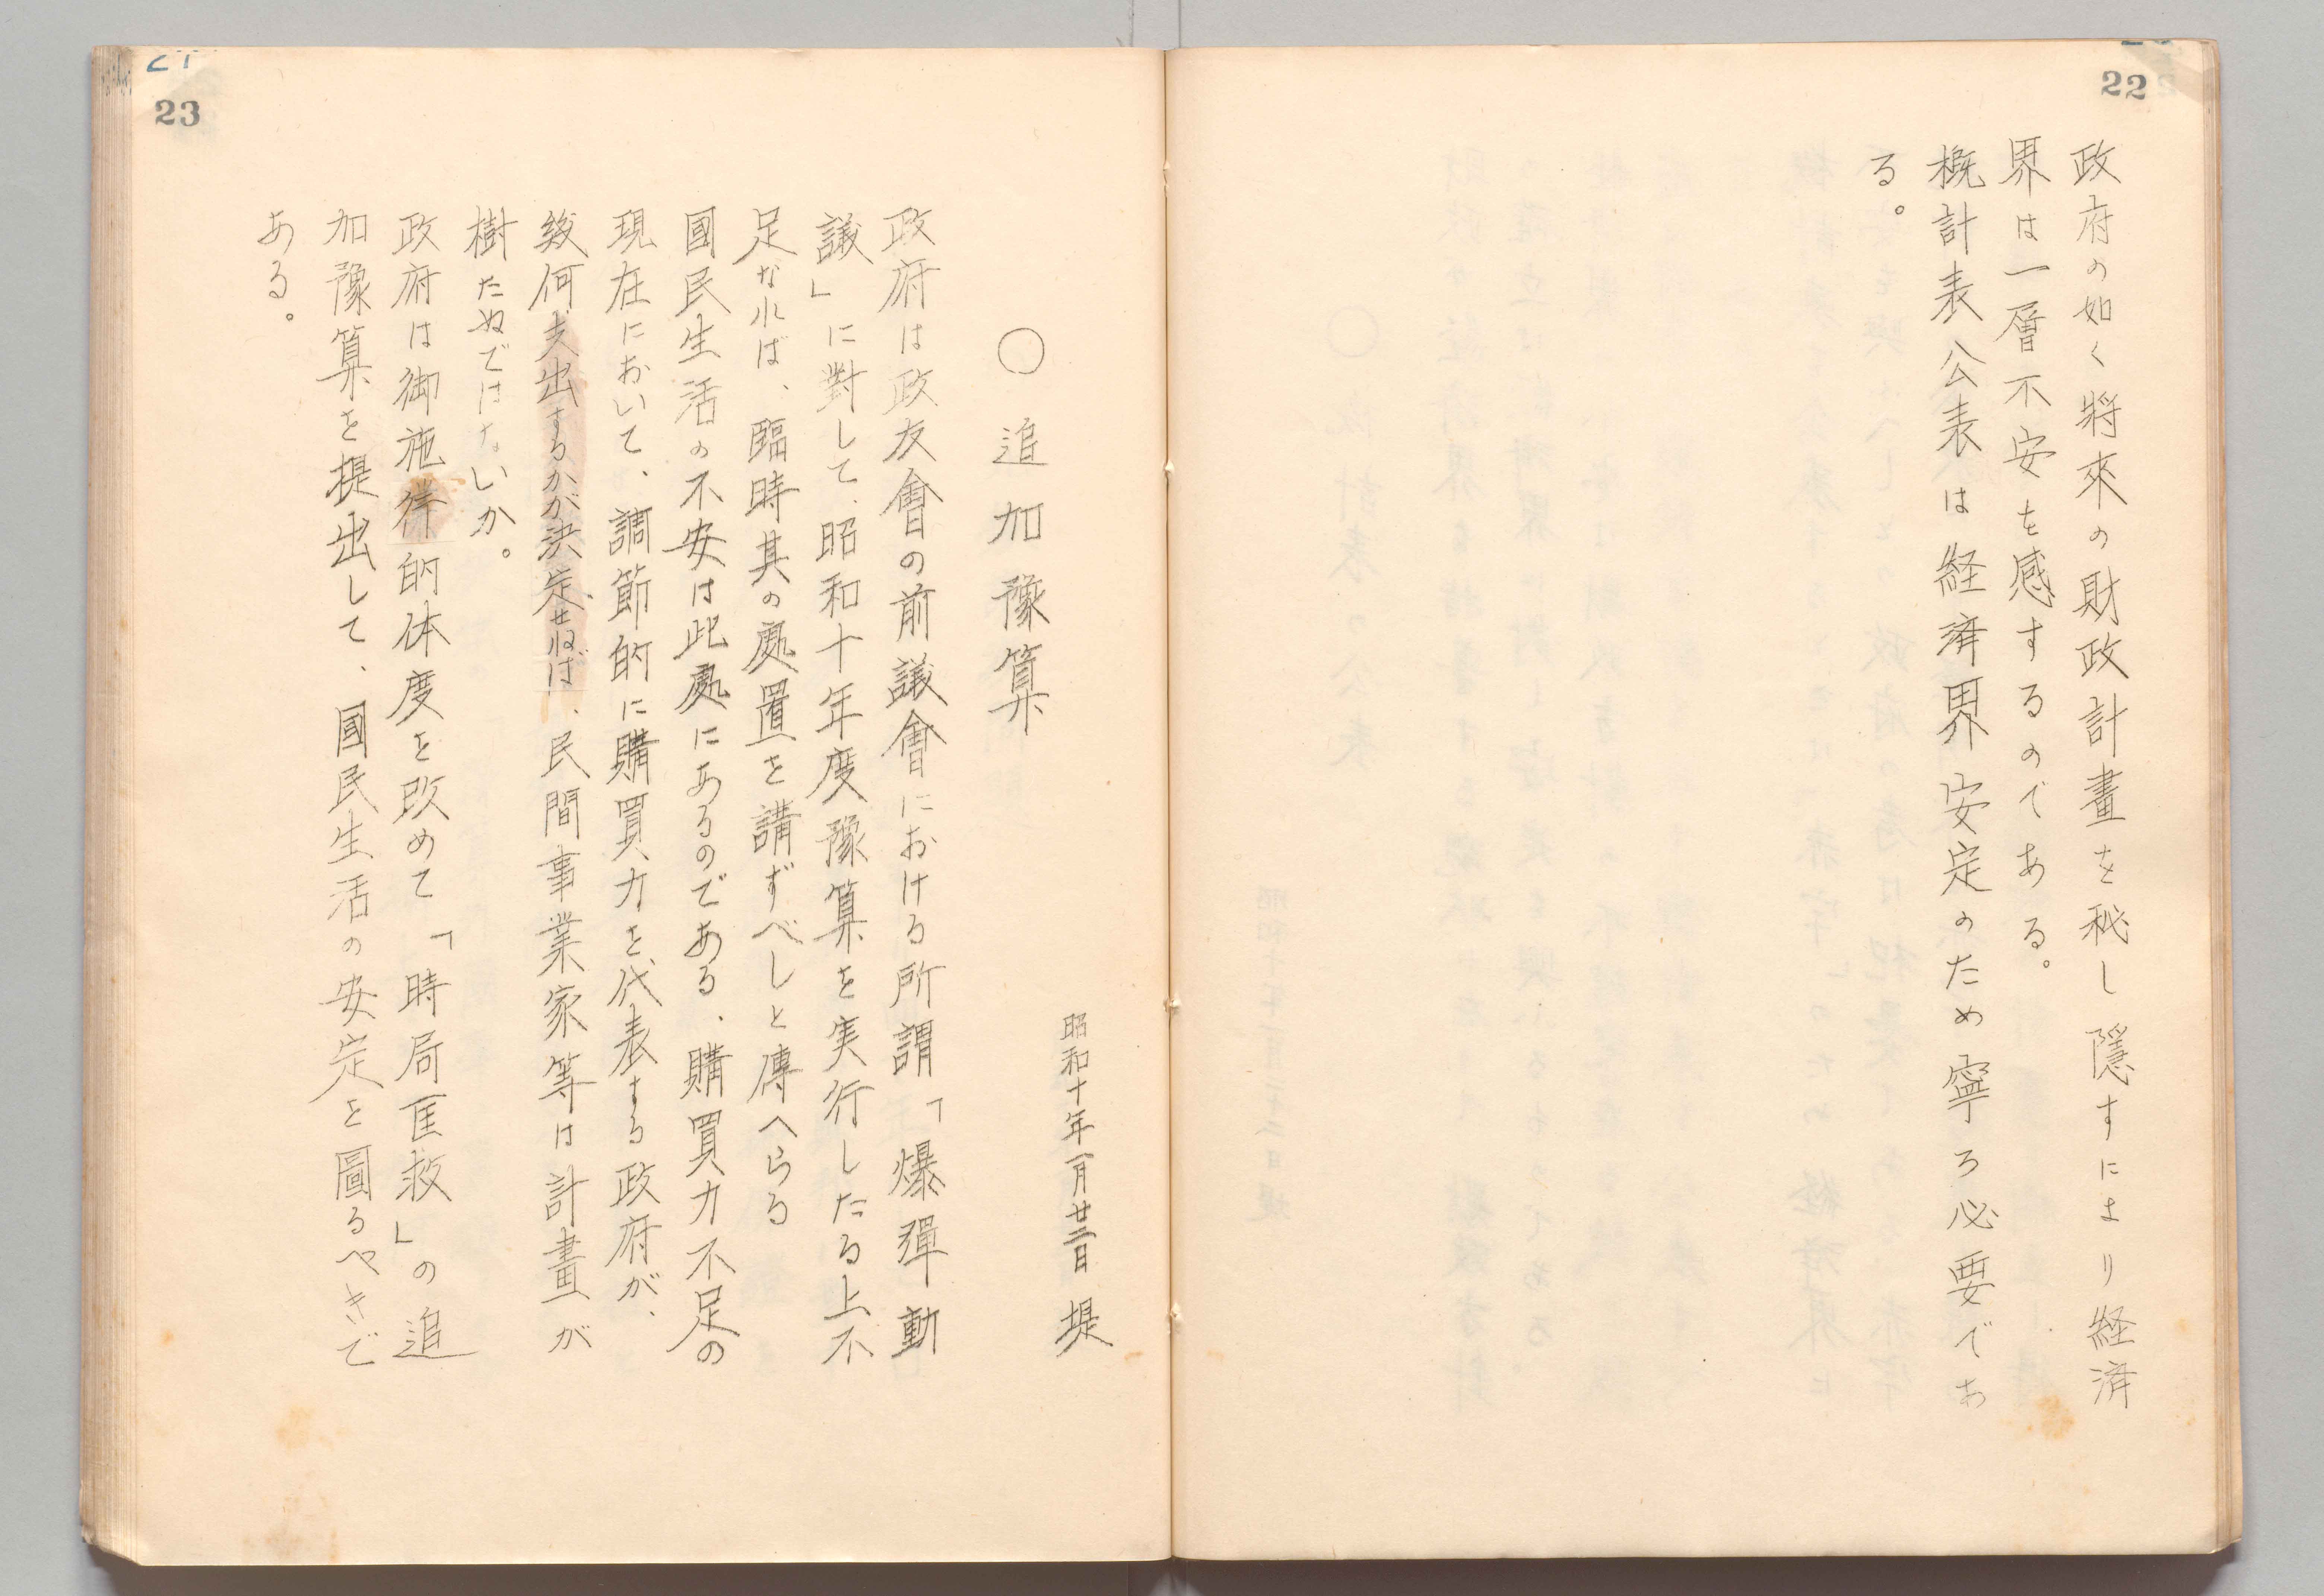 22
政府の如く將來の財政計畫を秘し隱すにより経済
界は一層不安を感するのである。
概計表公表は経済界安定のため寧ろ必要であ
る。
23
昭和十年一月廿三日 堤
○追加豫算
政府は政友會の前議會における所謂「爆彈動
議」に對して、昭和十年度豫算を実行したる上不
足なれば、臨時其の處置を講ずべしと傳へらる
國民生活の不安は此處にあるのである、購買力不足の
現在において、調節的に購買力を代表する政府が、
幾何支出するかが決定せねば、民間事業家等は計畫が
樹たぬではないか。
政府は御施󠄀的体度を改めて「時局匡救」の追
加豫算を提出して、國民生活の安定を圖るべきで
ある。